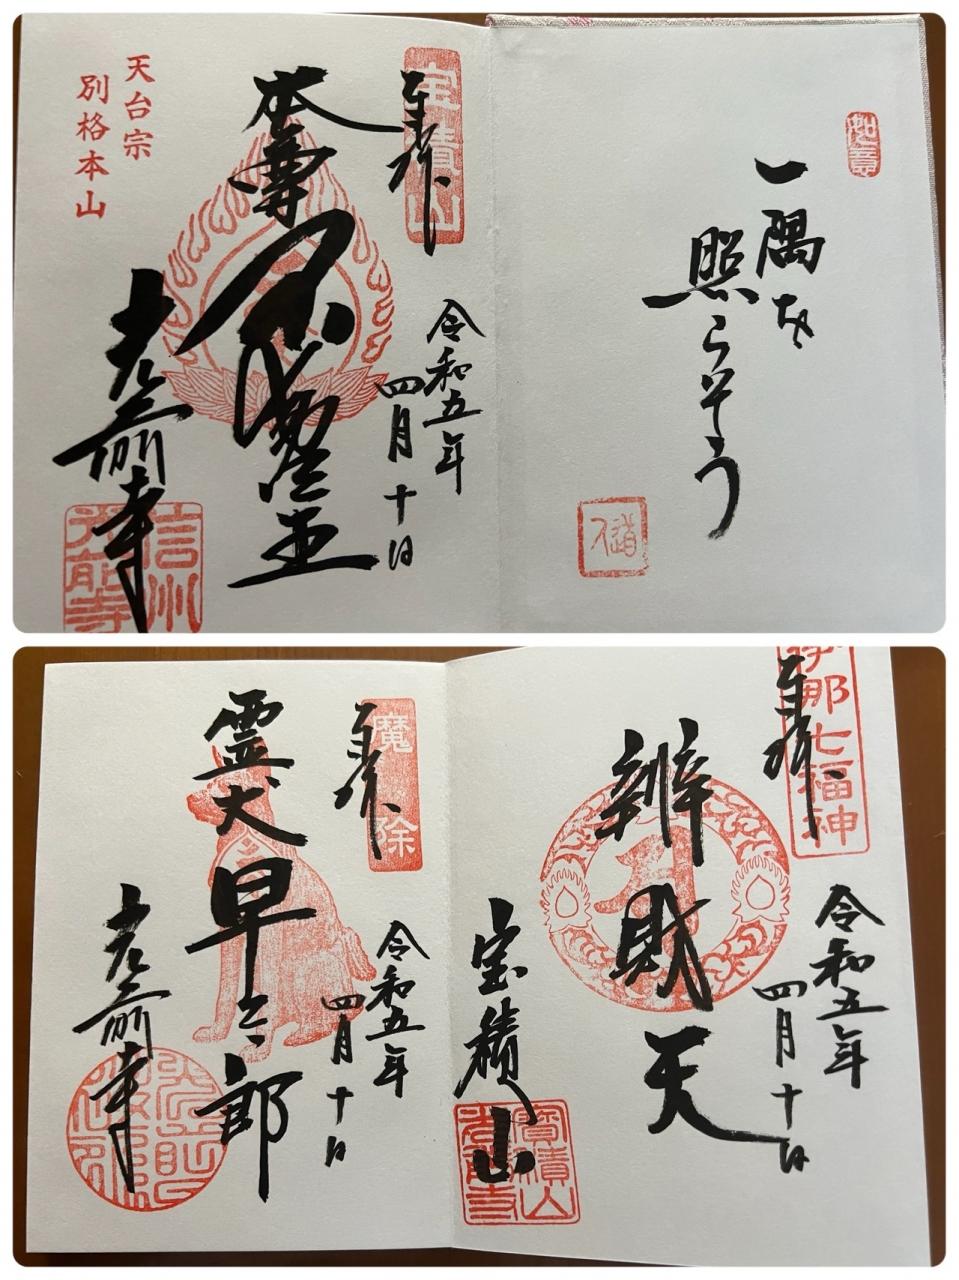 如意
一隅を
照らそう
宝積山
奉拝
令和五年
四月十日
本尊
不動尊
天台宗
別格本山
光前寺
信州
光前寺
伊那七福神
奉拝
令和五年
四月十日
辨財天
宝積山
寶積山
光前寺
魔除
奉拝
令和五年
四月十日
霊犬
早太郎
光前寺